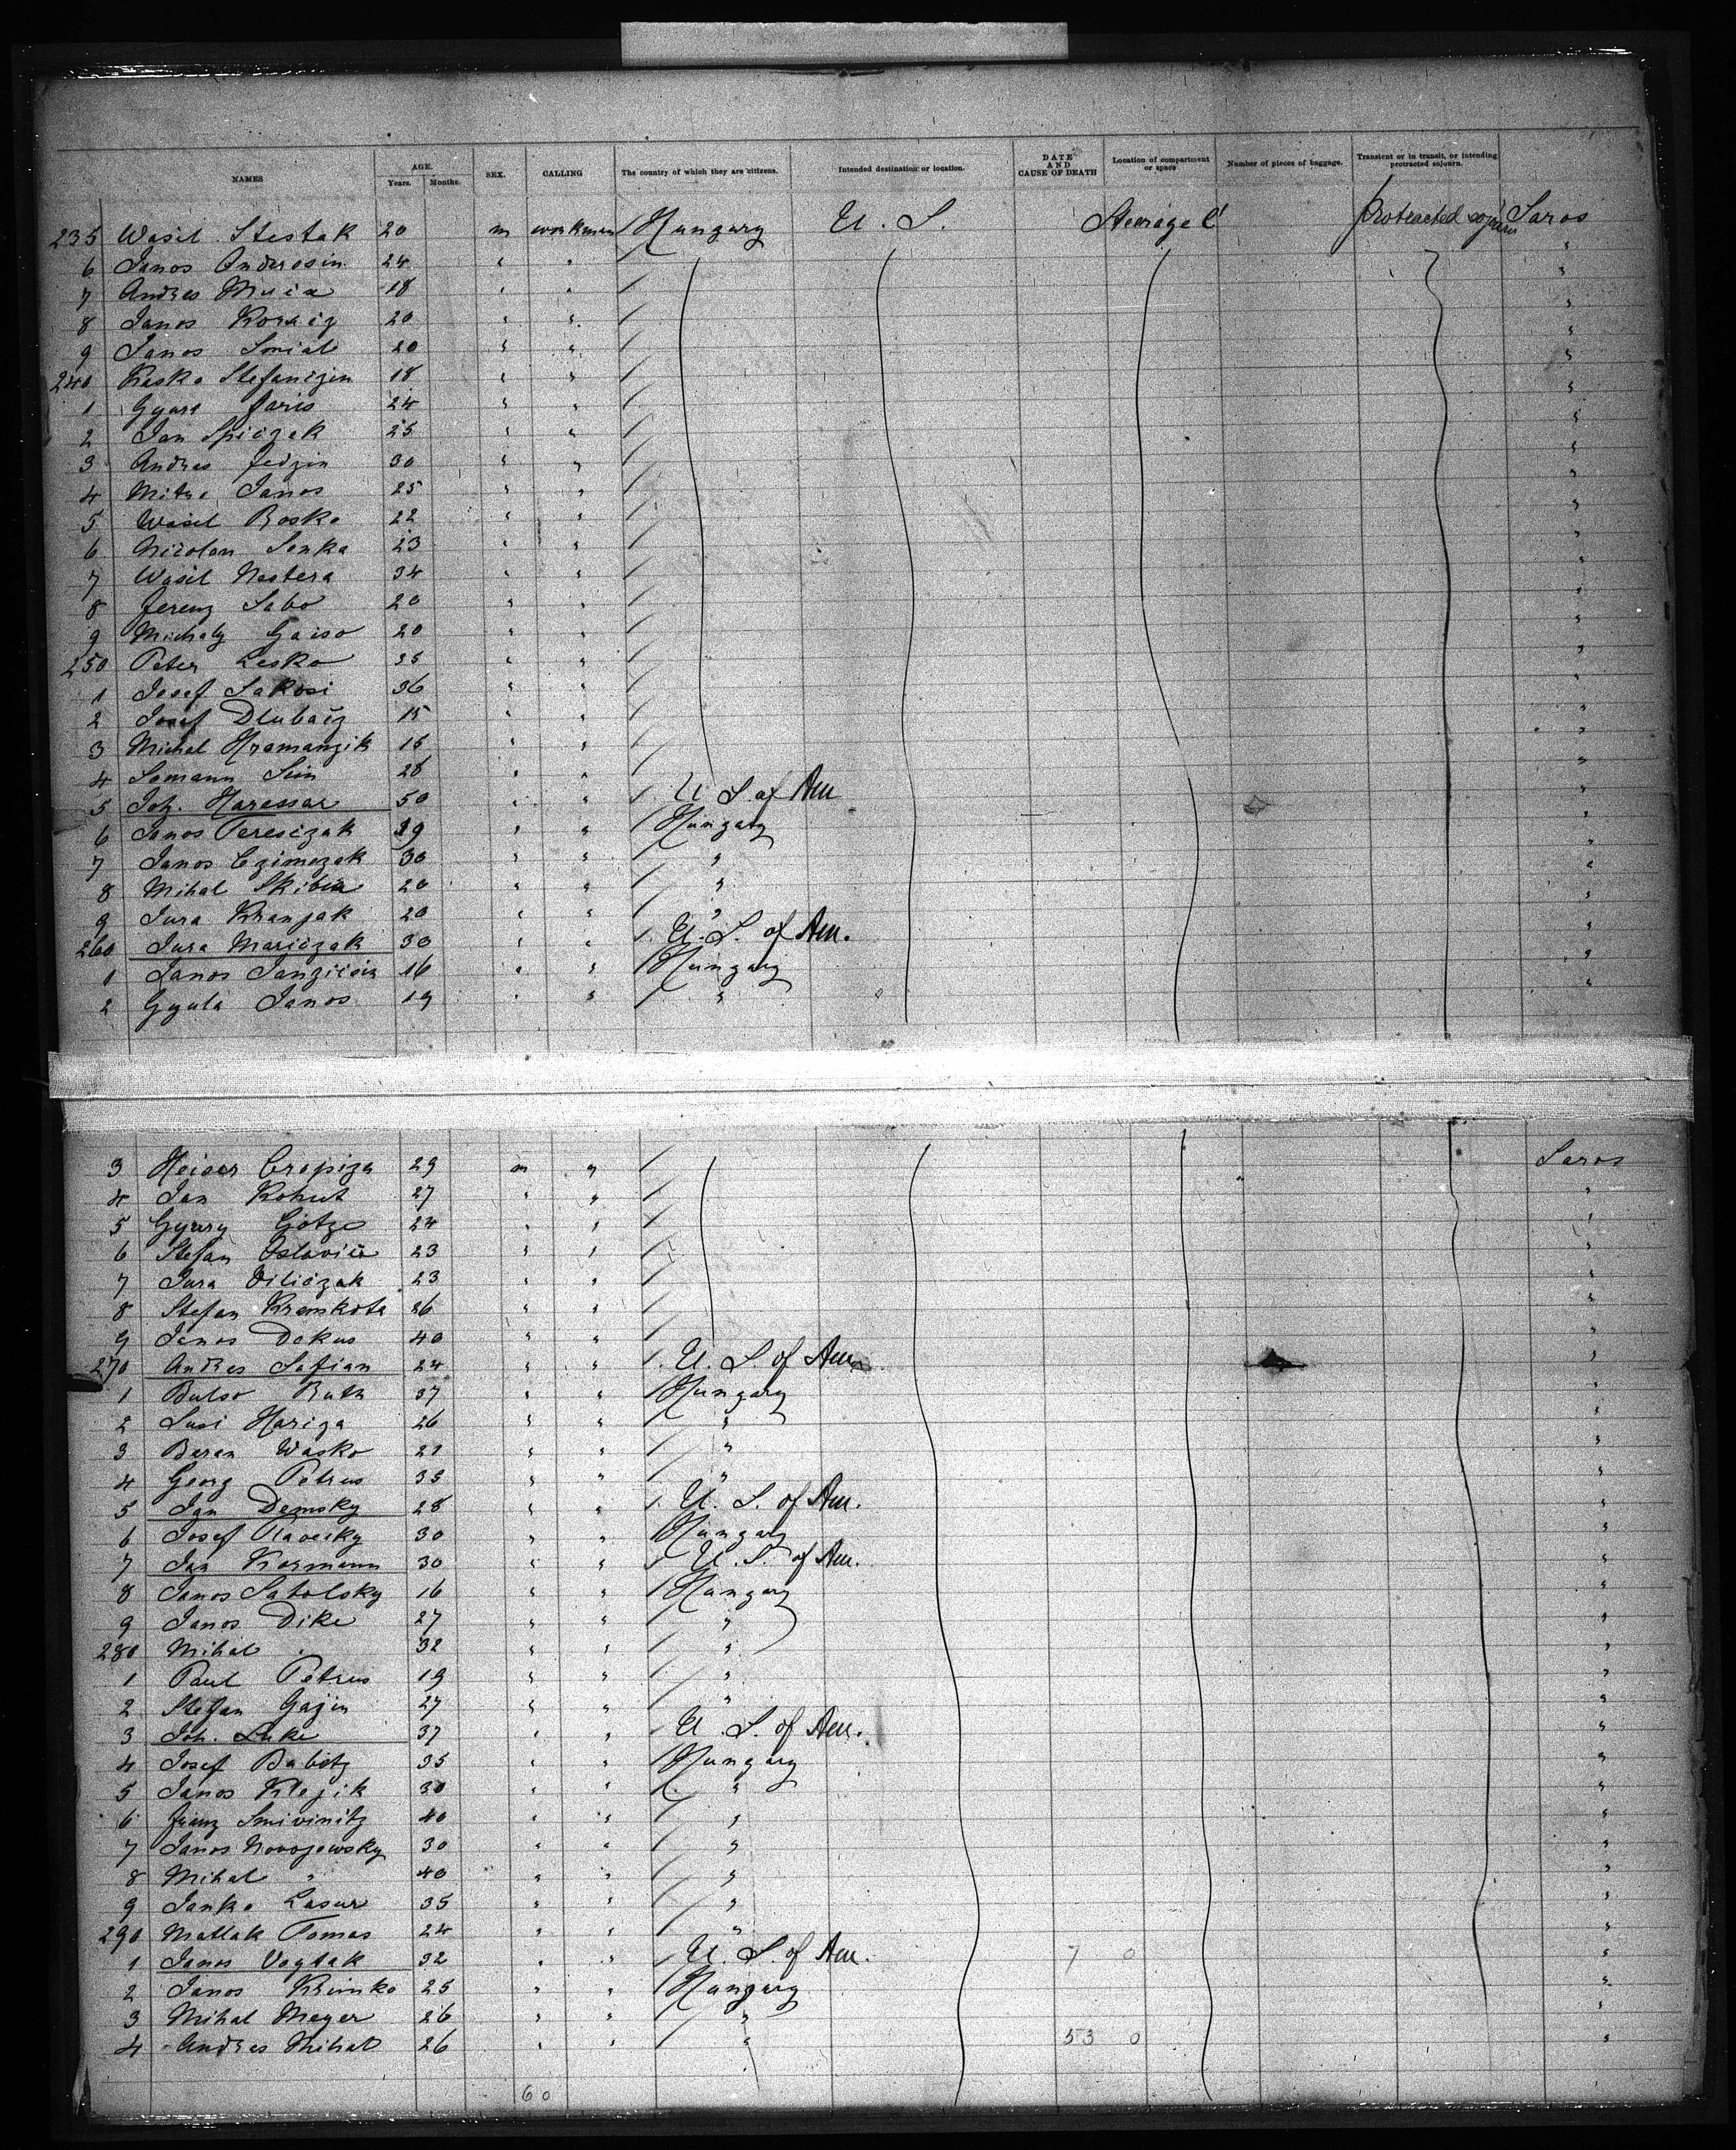 NAMES AGE. Years. Months. SEX. CALLING The country of which they are citizens. Intended destination or location. DATE AND CAUSE OF DEATH Location of compartment or space Number of pieces of baggage. Transient or in transit, or intending protracted sojourn.
235 Wasil Stestak 20 m workman / Hungary U. S. Steerage Protracted sojourn Saros
6 Janos Anderosin 24 " " / "
7 Andres 18 " " / "
8 Janos 20 " " / "
9 Janos Smial 20 " " / "
240 Wasko Stefanizin 18 " " / "
1 Gyura Faris 24 " " / "
2 Jan Spiczak 25 " " / "
3 Andras Fedzin 30 " " / "
4 Mitra Janos 25 " " / "
5 Wasil Bosko 22 " " / "
6 Nicolan Senka 23 " " / "
7 Wasil Nestera 34 " " / "
8 Ferenz Sabo 20 " " / "
9 Michaly Gaiso 20 " " / "
250 Peter Lesko 35 " " / "
1 Josef Sakosi 36 " " / "
2 Josef Dlubacz 15 " " / "
3 Michal Hramanzik 16 " " / "
4 Semann Sim 28 " " / "
5 Joh. Haressar 50 " " / U. S. of Am "
6 Janos Teresczak 39 " " / Hungary "
7 Janos Czimezak 30 " " / " "
8 Mihal Skibia 20 " " / " "
9 Jura Kranjak 20 " " / " "
260 Jura Mariczak 30 " " / U. S. of Am. "
1 Janos 16 " " / Hungary "
2 Gyula Janos 19 " " / " "
3 Heiser Crapiza 29 m " / Saros
4 Jan Kohut 27 " " / "
5 Gyury Götze 24 " " / "
6 Stefan Oslavic 23 " " / "
7 Jura Viliczak 23 " " / "
8 Stefan Kremkota 26 " " / "
9 Janos Dakus 40 " " / "
270 Andres Safian 24 " " / U. S. of Am "
1 Butso Ruth 37 " " / Hungary "
2 Susi Hariza 26 " " / " "
3 Baran Wasko 27 " " / " "
4 Georg Petrus 35 " " / " "
5 Jan Demsky 28 " " / U. S. of Am. "
6 Josef 30 " " / Hungary "
7 Jan Kormann 30 " " / U. S. of Am. "
8 Janos Satolsky 16 " " / Hungary "
9 Janos Dike 27 " " / " "
280 Mihal " 32 " " / " "
1 Paul Petrus 19 " " / " "
2 Stefan Gajin 27 " " / " "
3 Joh. Luke 37 " " / U. S. of Am. "
4 Josef Babitz 35 " " / Hungary "
5 Janos Klejik 30 " " / " "
6 Franz Smivinitz 40 " " / " "
7 Janos Novojewsky 30 " " / " "
8 Mihal " 40 " " / " "
9 Janko Lasur 35 " " / " "
290 Matlak Tomas 24 " " / " "
1 Janos Vogtak 32 " " / U. S. of Am. 7 0 "
2 Janos Krimko 25 " " / Hungary "
3 Mihal Meyer 26 " " / " "
4 Andres Mihal 26 " " / " 53 0 "
60